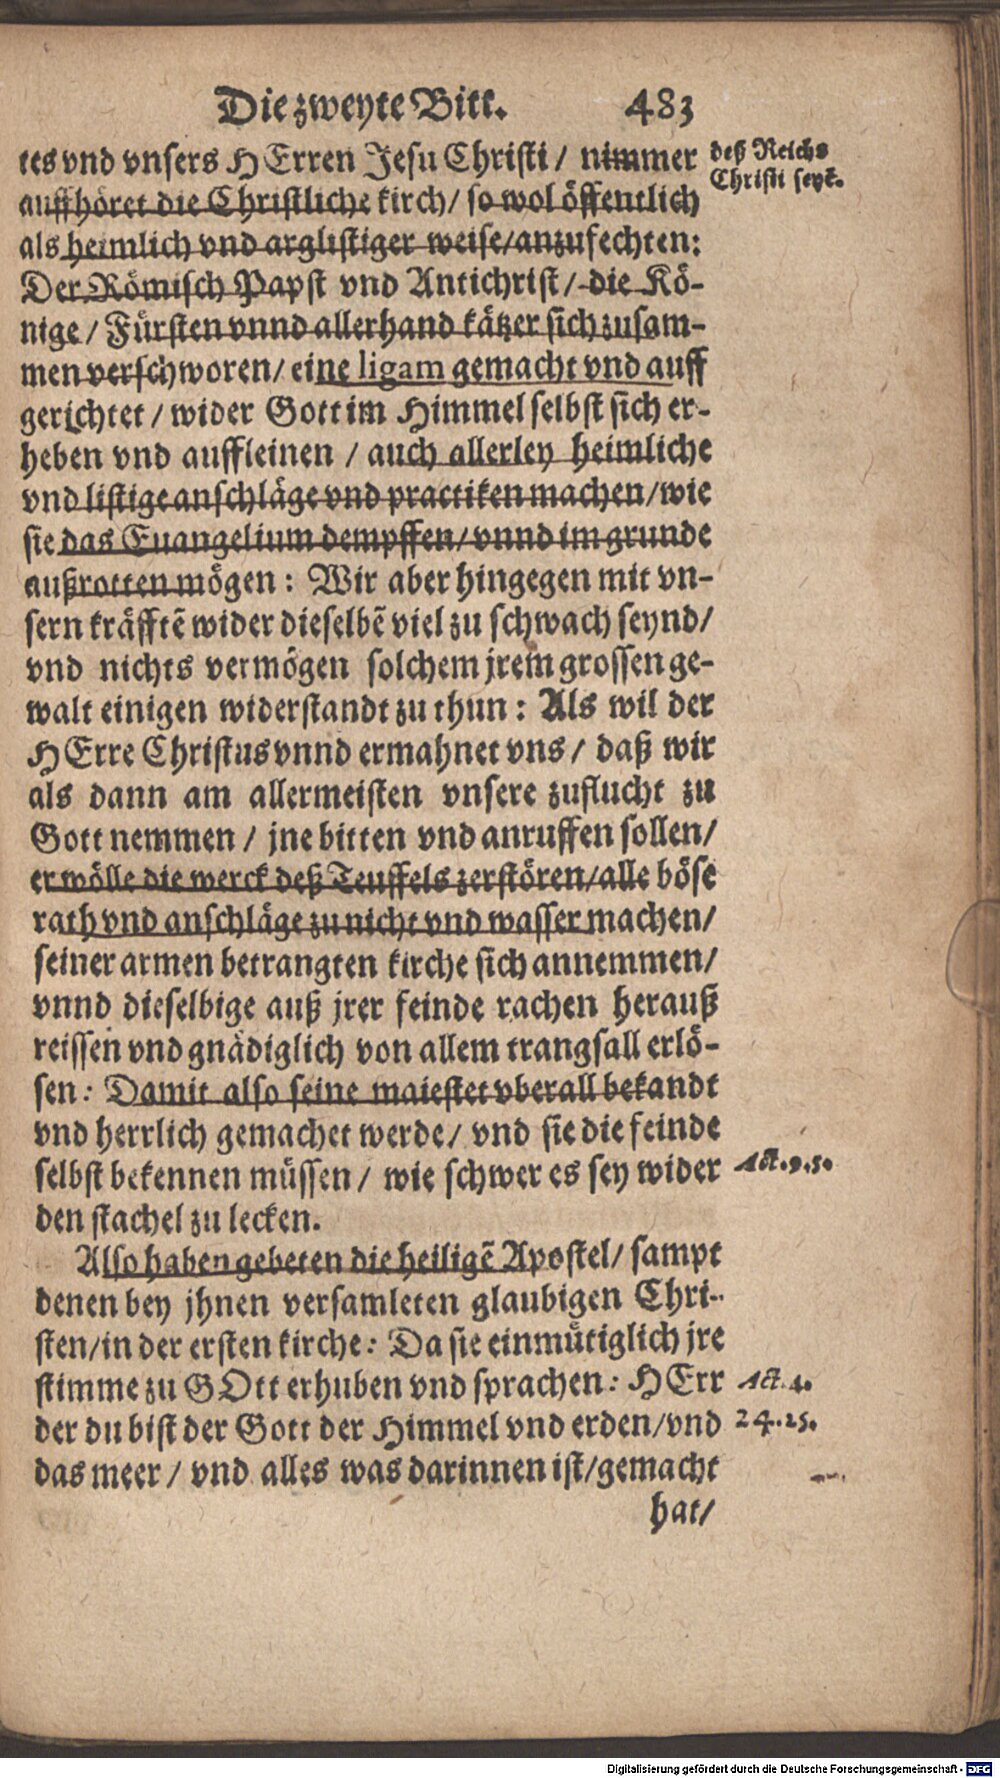 Die zweyte Bitt. 483
tes vnd vnsers HErren Jesu Christi / nimmer
deß Reichs
Christi seyt.
auffhöret die Christliche kirch / so wol öffentlich
als heimlich vnd arglistiger weise / anzufechten:
Der Römisch Papst vnd Antichrist / die Kö-
nige / Fürsten vnnd allerhand kätzer sich zusam-
men verschworen / eine ligam gemacht vnd auff
gerichtet / wider Gott im Himmel selbst sich er-
heben vnd auffleinen / auch allerley heimliche
vnd listige anschläge vnd practiken machen / wie
sie das Euangelium dempffen / vnnd im grunde
außrotten mögen: Wir aber hingegen mit vn-
sern kräfftē wider dieselbē viel zu schwach seynd /
vnd nichts vermögen solchem jrem grossen ge-
walt einigen widerstandt zu thun: Als wil der
HErre Christus vnnd ermahnet vns / daß wir
als dann am allermeisten vnsere zuflucht zu
Gott nemmen / jne bitten vnd anruffen sollen /
er wölle die werck deß Teuffels zerstören / alle böse
rath vnd anschläge zu nicht vnd wasser machen /
seiner armen betrangten kirche sich annemmen /
vnnd dieselbige auß jrer feinde rachen herauß
reissen vnd gnädiglich von allem trangsall erlö-
sen: Damit also seine maiestet vberall bekandt
vnd herrlich gemachet werde / vnd sie die feinde
selbst bekennen müssen / wie schwer es sey wider
Act. 9. 5.
den stachel zu lecken.
Also haben gebeten die heiligē Apostel / sampt
denen bey jhnen versamleten glaubigen Chri-
sten / in der ersten kirche: Da sie einmütiglich jre
stimme zu GOtt erhuben vnd sprachen: HErr
Act. 4.
der du bist der Gott der Himmel vnd erden / vnd
24. 25.
das meer / vnd alles was darinnen ist / gemacht
hat /
Digitalisierung gefördert durch die Deutsche Forschungsgemeinschaft - DFG